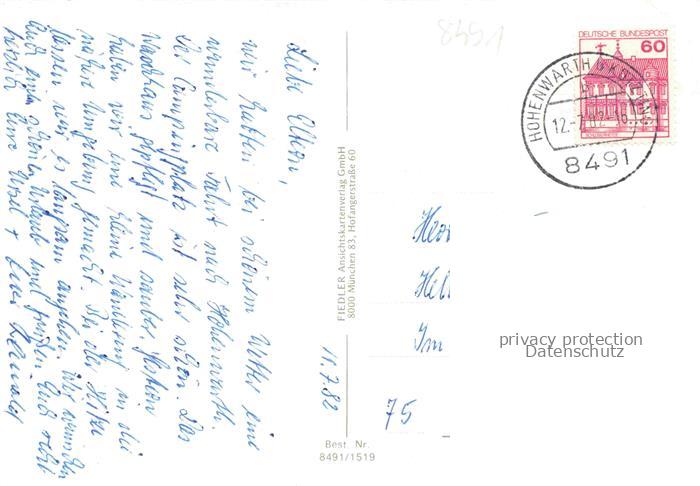 8491
DEUTSCHE BUNDESPOST
60
HOHENWARTH
12.-7.82
8491
Liebe Eltern,
wir hatten bei schönem Wetter eine
wunderbare Fahrt nach Hohenwarth.
Der Campingplatz ist sehr schön. Das
Waschhaus gepflegt und sauber. Gestern
haben wir eine kleine Wanderung in die
nähere Umgebung gemacht. Bei der Hitze
lassen wir es langsam angehen. Wir wünschen
Euch einen schönen Urlaub und grüßen Euch recht
herzlich Eure Ursel +
11.7.82
FIEDLER Ansichtskartenverlag GmbH
8000 München 83, Hofangerstraße 60
Im
75
privacy protection
Datenschutz
Best. Nr.
8491/1519